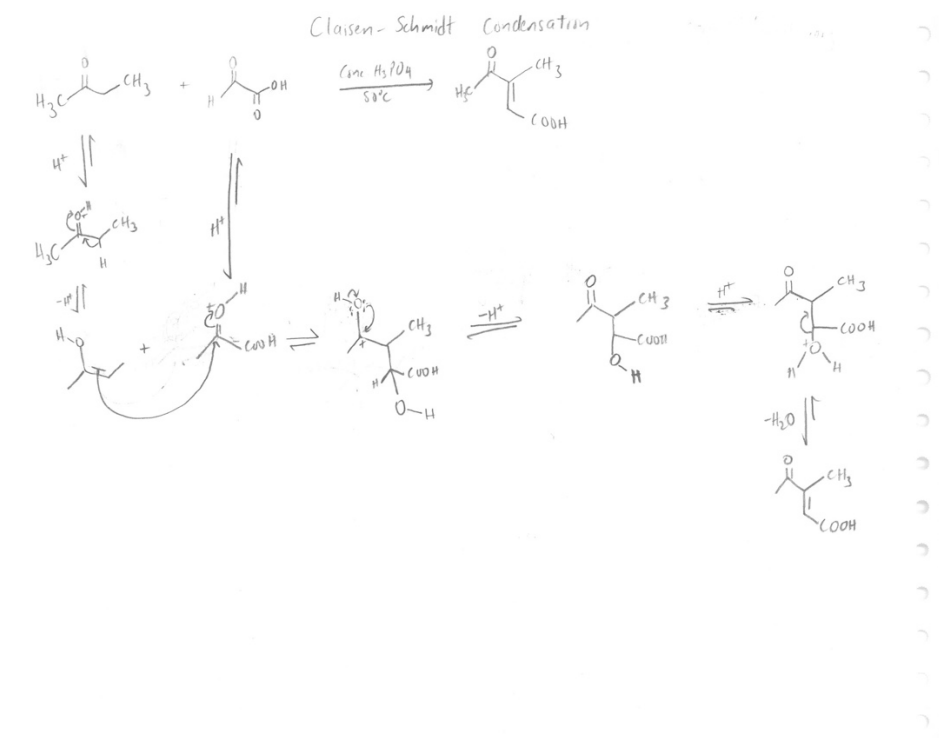 Claisen-Schmidt Condensation
O O O CH3
H3C CH3 + H OH Conc H3PO4 H3C
O 50°C COOH
H+
H+
O H
H3C CH3
H
-H+
H O + +O H COOH
H O CH3
+
H COOH
O-H
-H+
O CH3
COOH
O H
H+
O CH3
COOH
+O
H H
-H2O
O CH3
COOH